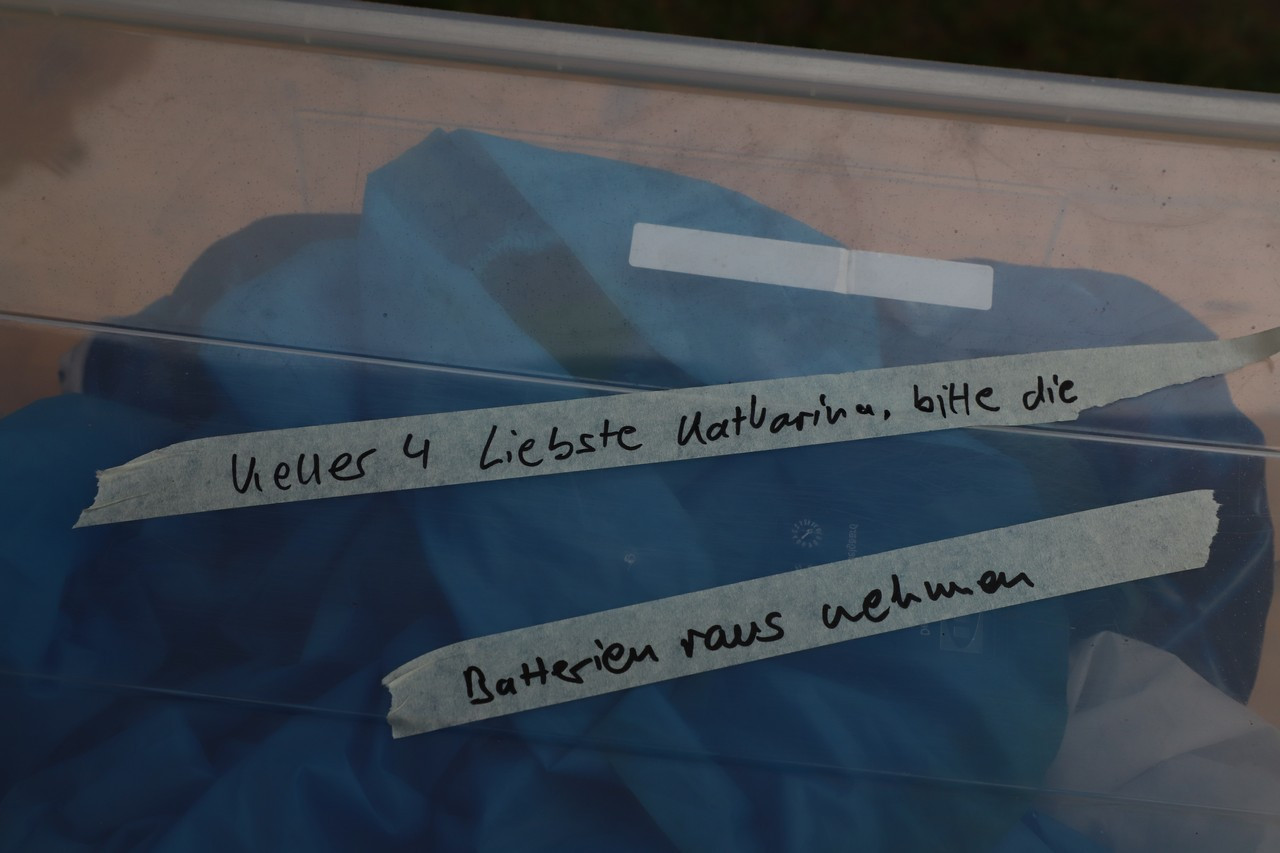 Keller 4 Liebste Katharina, bitte die
Batterien raus nehmen